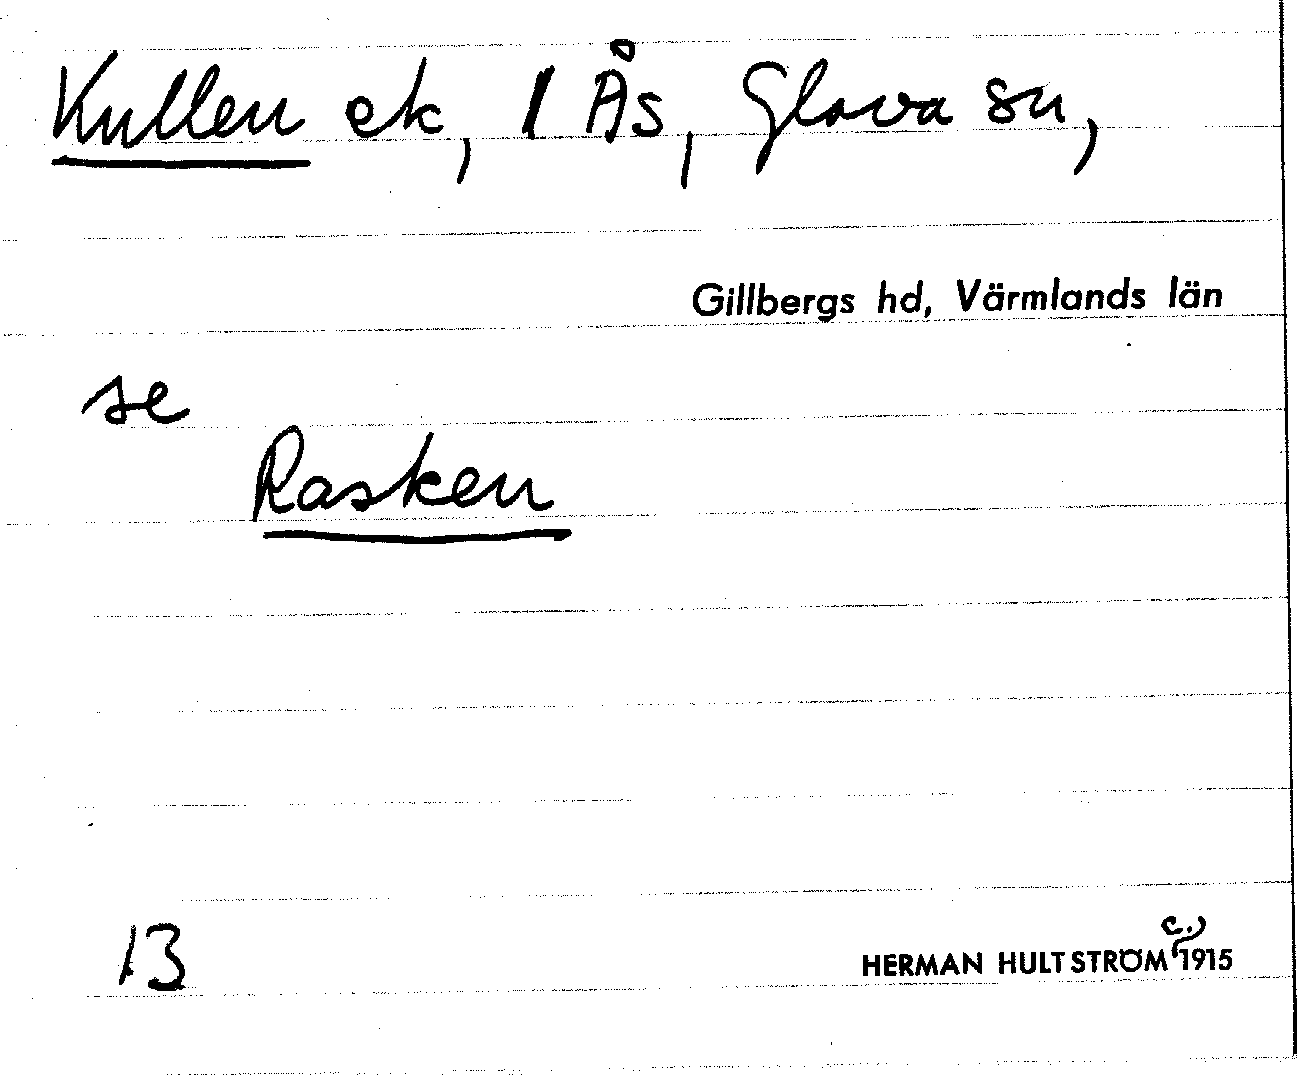 Kullen ek, 1 Ås, Glava sn,
Gillbergs hd, Värmlands län
se
Rasken
13
HERMAN HULTSTRÖM c. 1915